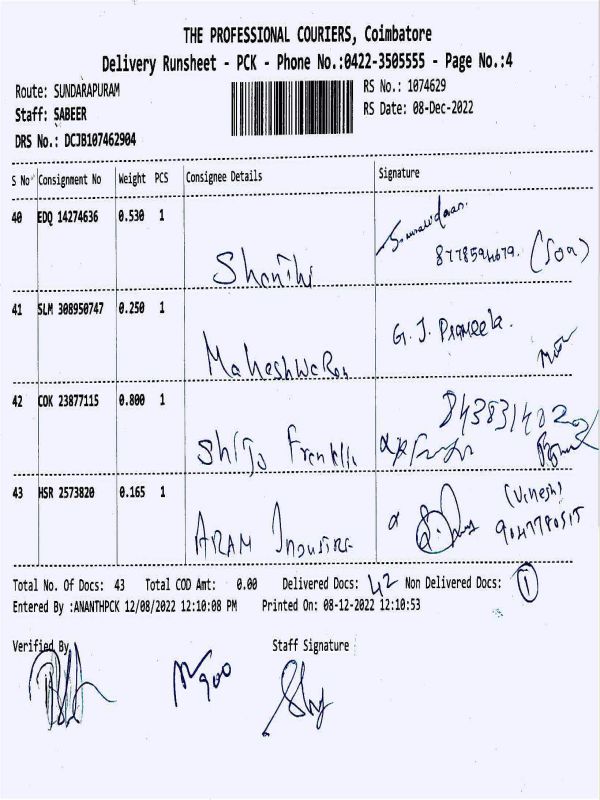 THE PROFESSIONAL COURIERS, Coimbatore
Delivery Runsheet - PCK - Phone No.:0422-3505555 - Page No.:4
Route: SUNDARAPURAM
RS No.: 1074629
Staff: SABEER
RS Date: 08-Dec-2022
DRS No.: DCJB107462904
S No Consignment No Weight PCS Consignee Details Signature
40 EDQ 14274636 0.530 1
Shanthi
(Son)
41 SLM 308950747 0.250 1
G. J. Prameela.
Maheshwaran
42 COK 23877115 0.800 1
Shijo Franklin
43 HSR 2573820 0.165 1
(Vinesh)
9047780515
ARAM Industri
Total No. Of Docs: 43 Total COD Amt: 0.00 Delivered Docs: 42 Non Delivered Docs: 1
Entered By :ANANTHPCK 12/08/2022 12:10:08 PM Printed On: 08-12-2022 12:10:53
Verified By
Staff Signature